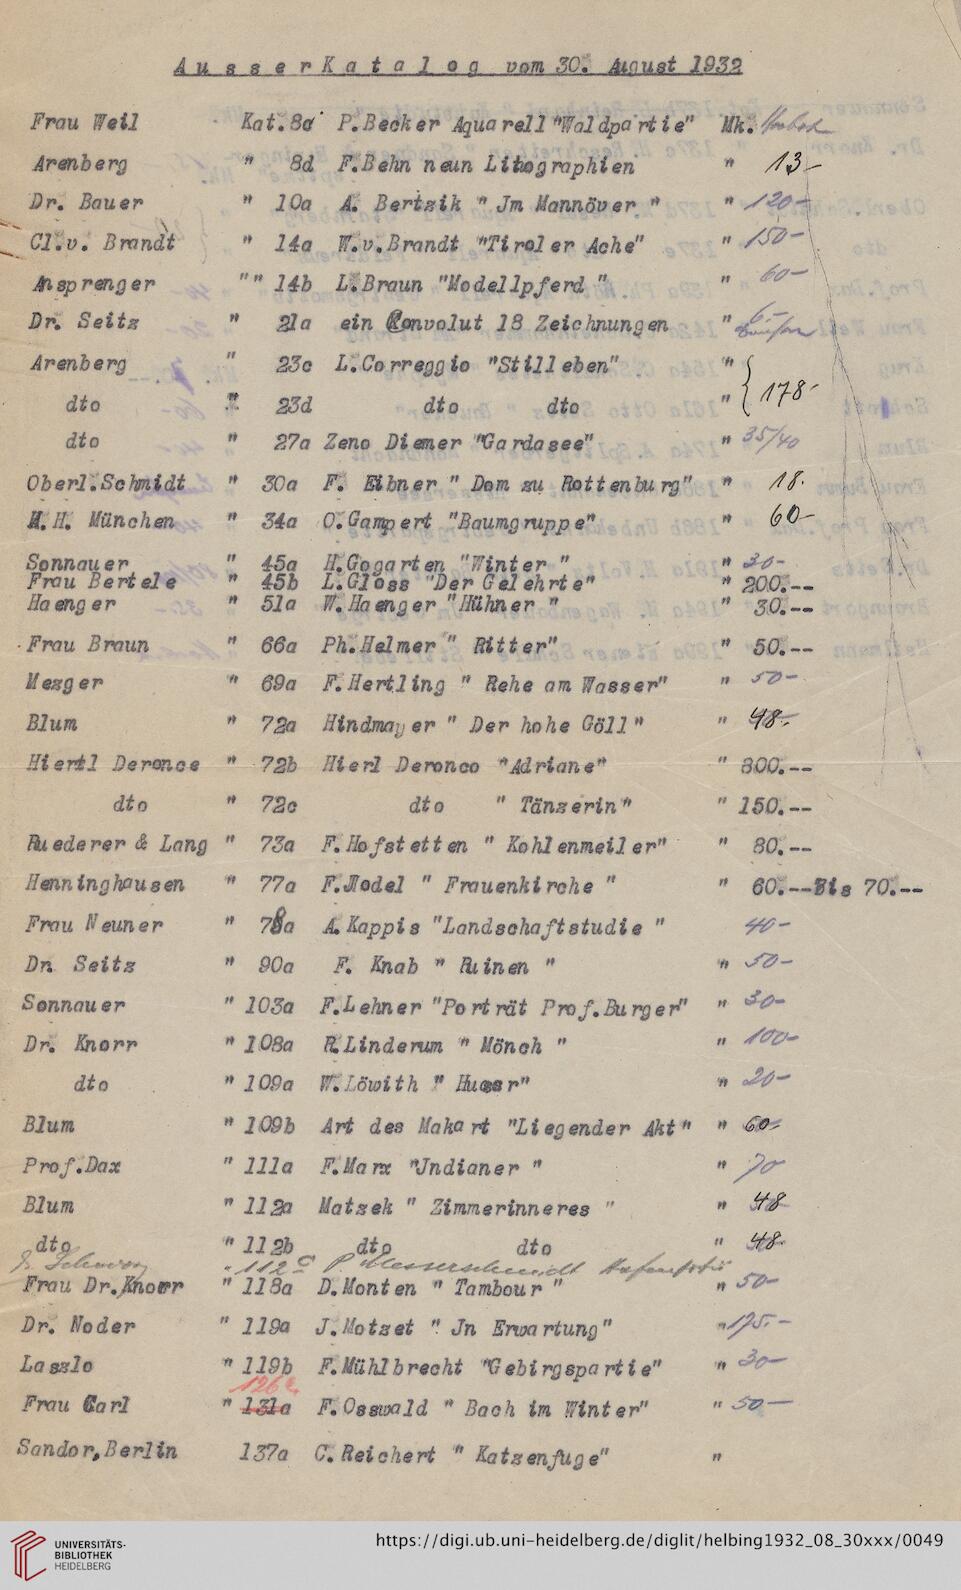 AusserKatalog vom 30. August 1932
Frau Weil Kat. 8c P.Becker Aquarell "Waldpartie" Mk.
Arenberg " 8d F.Behn neun Lithographien " 13-
Dr. Bauer " 10a A. Bertzik " Jm Mannöver " " 120-
Cl.v. Brandt " 14a W.v.Brandt "Tiroler Ache" " 150-
Ansprenger "" 14b L.Braun "Modellpferd " " 60-
Dr. Seitz " 21a ein Convolut 18 Zeichnungen " 6-
Arenberg " 23c L.Correggio "Stilleben" "
dto " 23d dto dto " 178-
dto " 27a Zeno Diemer "Gardasee" " 35/40
Oberl.Schmidt " 30a F. Eibner " Dom zu Rottenburg" " 18.
H.H. München " 34a O.Gampert "Baumgruppe" " 60-
Sonnauer " 45a H.Gogarten "Winter " " 30-
Frau Bertele " 45b L.Gloss "Der Gelehrte" " 200.--
Haenger " 51a W.Haenger "Hühner " " 30.--
Frau Braun " 66a Ph.Helmer " Ritter" " 50.--
Mezger " 69a F.Hertling " Rehe am Wasser" " 50-
Blum " 72a Hindmayer " Der hohe Göll" " 48-.
Hierl Deronco " 72b Hierl Deronco "Adriane" " 800.--
dto " 72c dto " Tänzerin" " 150.--
Ruederer & Lang " 73a F.Hofstetten " Kohlenmeiler" " 80.--
Henninghausen " 77a F.Nodel " Frauenkirche " " 60.--Bis 70.--
Frau Neuner " 78a A.Kappis "Landschaftstudie " 40-
Dr. Seitz " 90a F. Knab " Ruinen " " 50-
Sonnauer " 103a F.Lehner "Porträt Prof.Burger" " 30-
Dr. Knorr " 108a R.Linderum " Mönch " " 100-
dto " 109a W.Löwith " Husar" " 20-
Blum " 109b Art des Makart "Liegender Akt" " 60-
Prof.Dax " 111a F.Marx "Jndianer " " 70
Blum " 112a Matzek " Zimmerinneres " " 48-
dto " 112b dto dto " 48-
" 112c P. Messerschmidt
Frau Dr.Knorr " 118a D.Monten " Tambour " " 50-
Dr. Noder " 119a J.Motzet " Jn Erwartung" " 175.-
Laszlo " 119b F.Mühlbrecht "Gebirgspartie" " 30-
126a
Frau Carl " 131a F.Osswald " Bach im Winter" " 50-
Sandor,Berlin 137a C.Reichert " Katzenfuge" "
UNIVERSITÄTS-
BIBLIOTHEK
HEIDELBERG
https://digi.ub.uni-heidelberg.de/diglit/helbing1932_08_30xxx/0049